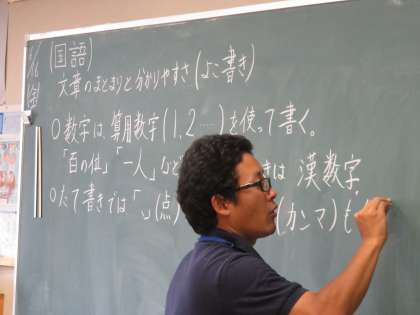 (国語)
文章のまとまりと分かりやすさ(よこ書き)
○数字は、算用数字(1,2…)を使って書く。
「百の位」「一人」など は 漢数字
○たて書きでは「、」(点) (カンマ)も